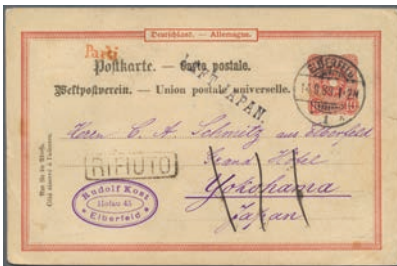 Deutschland. — Allemagne.
Parti
Postkarte. — Carte postale.
Weltpostverein. — Union postale universelle.
LEFT JAPAN.
ELBERFELD
1
Herrn C. A. Schmitz aus Elberfeld
Grand Hôtel
Yokohama
Japan
RIFIUTO
Rudolf Kost
Hofau 45
Elberfeld